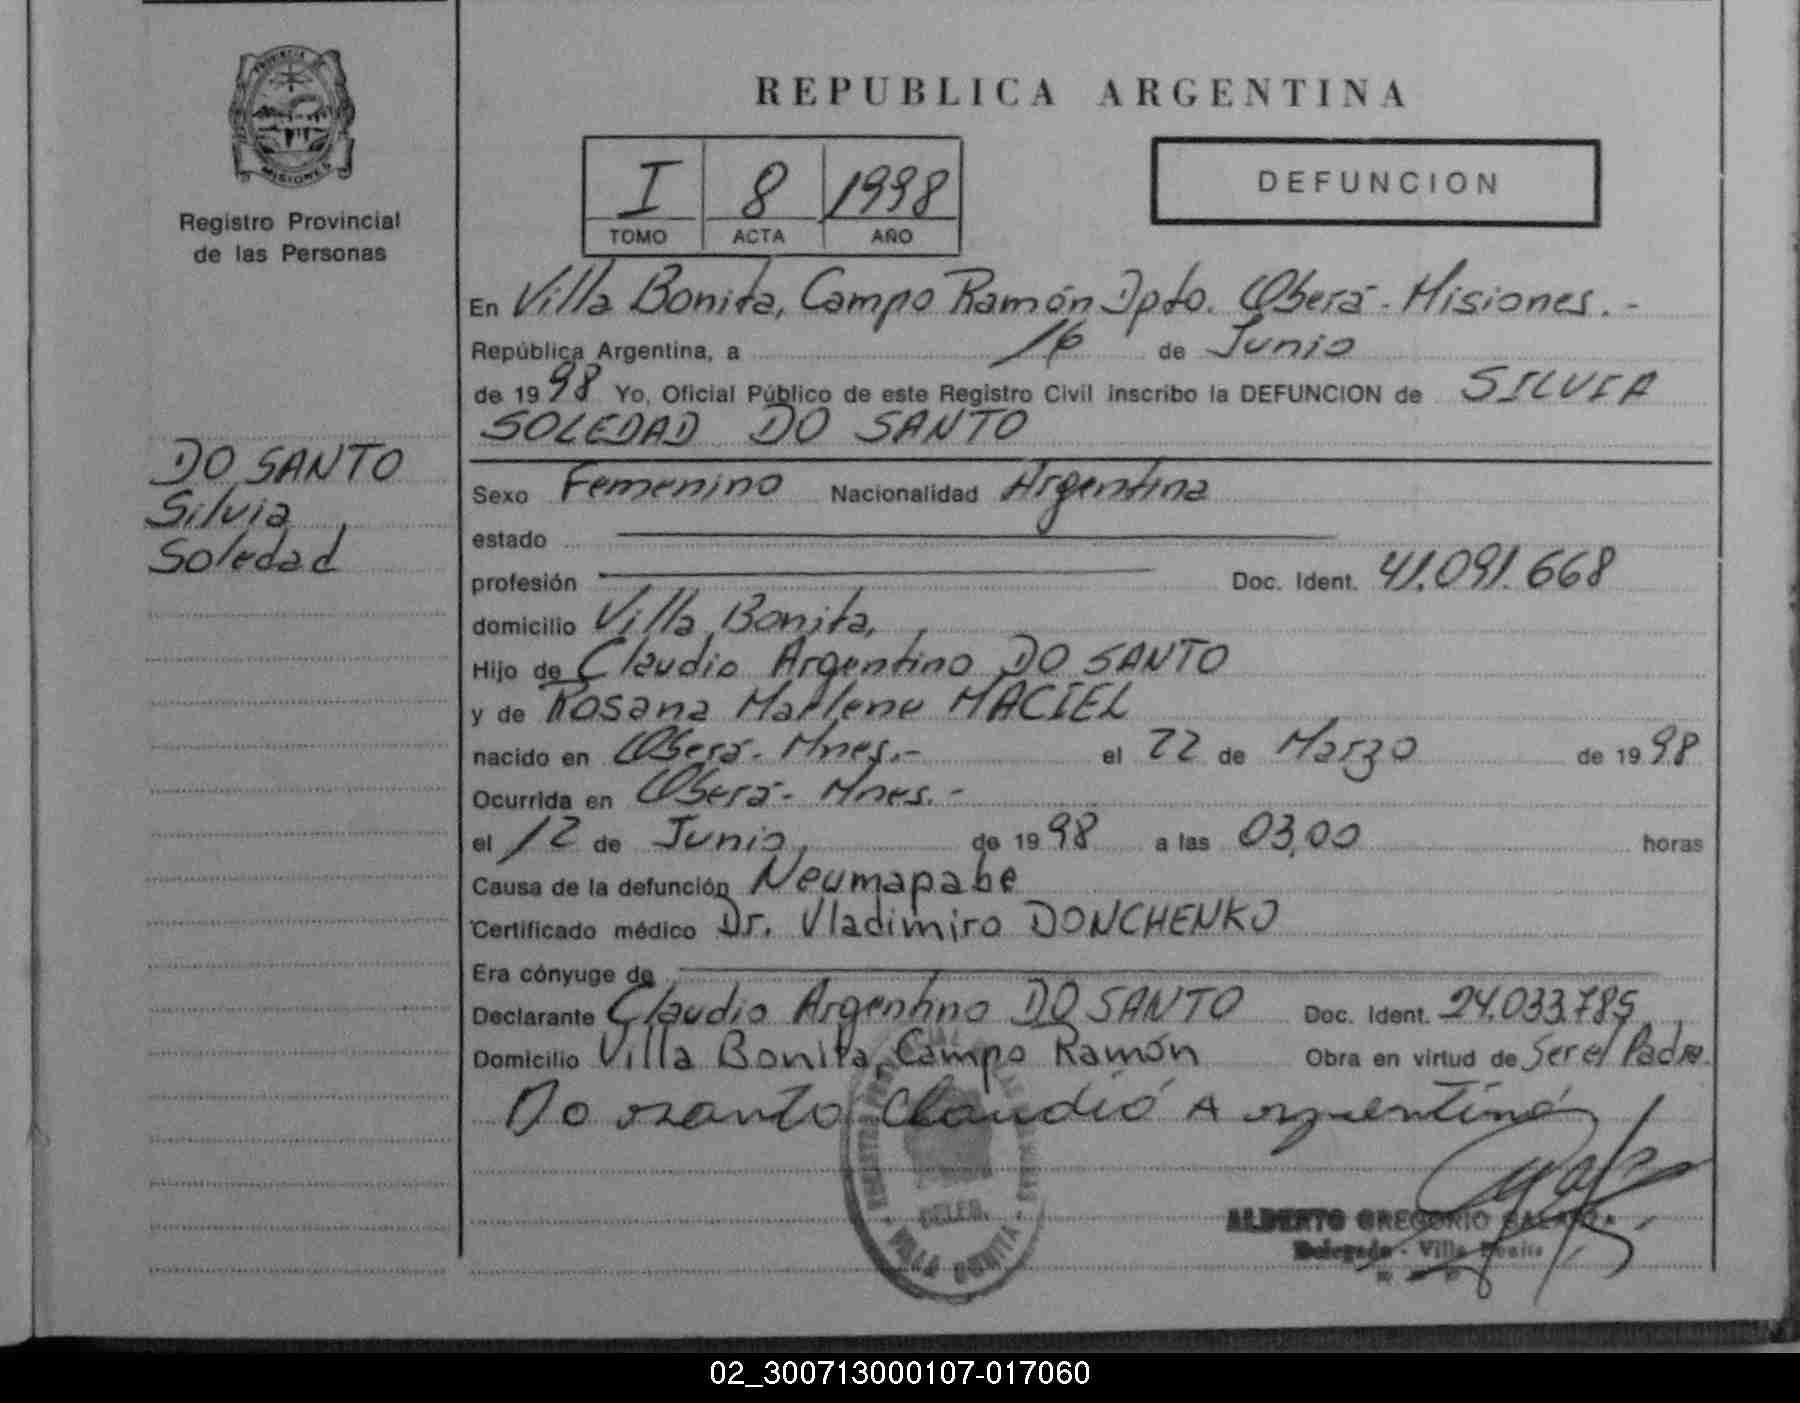 PROVINCIA DE
MISIONES
Registro Provincial
de las Personas
DO SANTO
Silvia
Soledad
REPUBLICA ARGENTINA
I 8 1998
TOMO ACTA AÑO
DEFUNCION
En Villa Bonita, Campo Ramón Dpto. Oberá - Misiones.-
República Argentina, a 16 de Junio
de 1998 Yo, Oficial Público de este Registro Civil inscribo la DEFUNCION de SILVIA
SOLEDAD DO SANTO
Sexo Femenino Nacionalidad Argentina
estado
profesión Doc. Ident. 41.091.668
domicilio Villa Bonita,
Hijo de Claudio Argentino DO SANTO
y de Rosana Marlene MACIEL
nacido en Oberá - Mnes.- el 22 de Marzo de 1998
Ocurrida en Oberá - Mnes.-
el 12 de Junio, de 1998 a las 03,00 horas
Causa de la defunción Neumapabe
Certificado médico Dr. Vladimiro DONCHENKO
Era cónyuge de
Declarante Claudio Argentino DO SANTO Doc. Ident. 24.033.785
Domicilio Villa Bonita, Campo Ramón Obra en virtud de Ser el Padre.
Do santo Claudio Argentino
DELEG.
VILLA BONITA
ALBERTO GREGORIO
Delegado - Villa Bonita
02_300713000107-017060